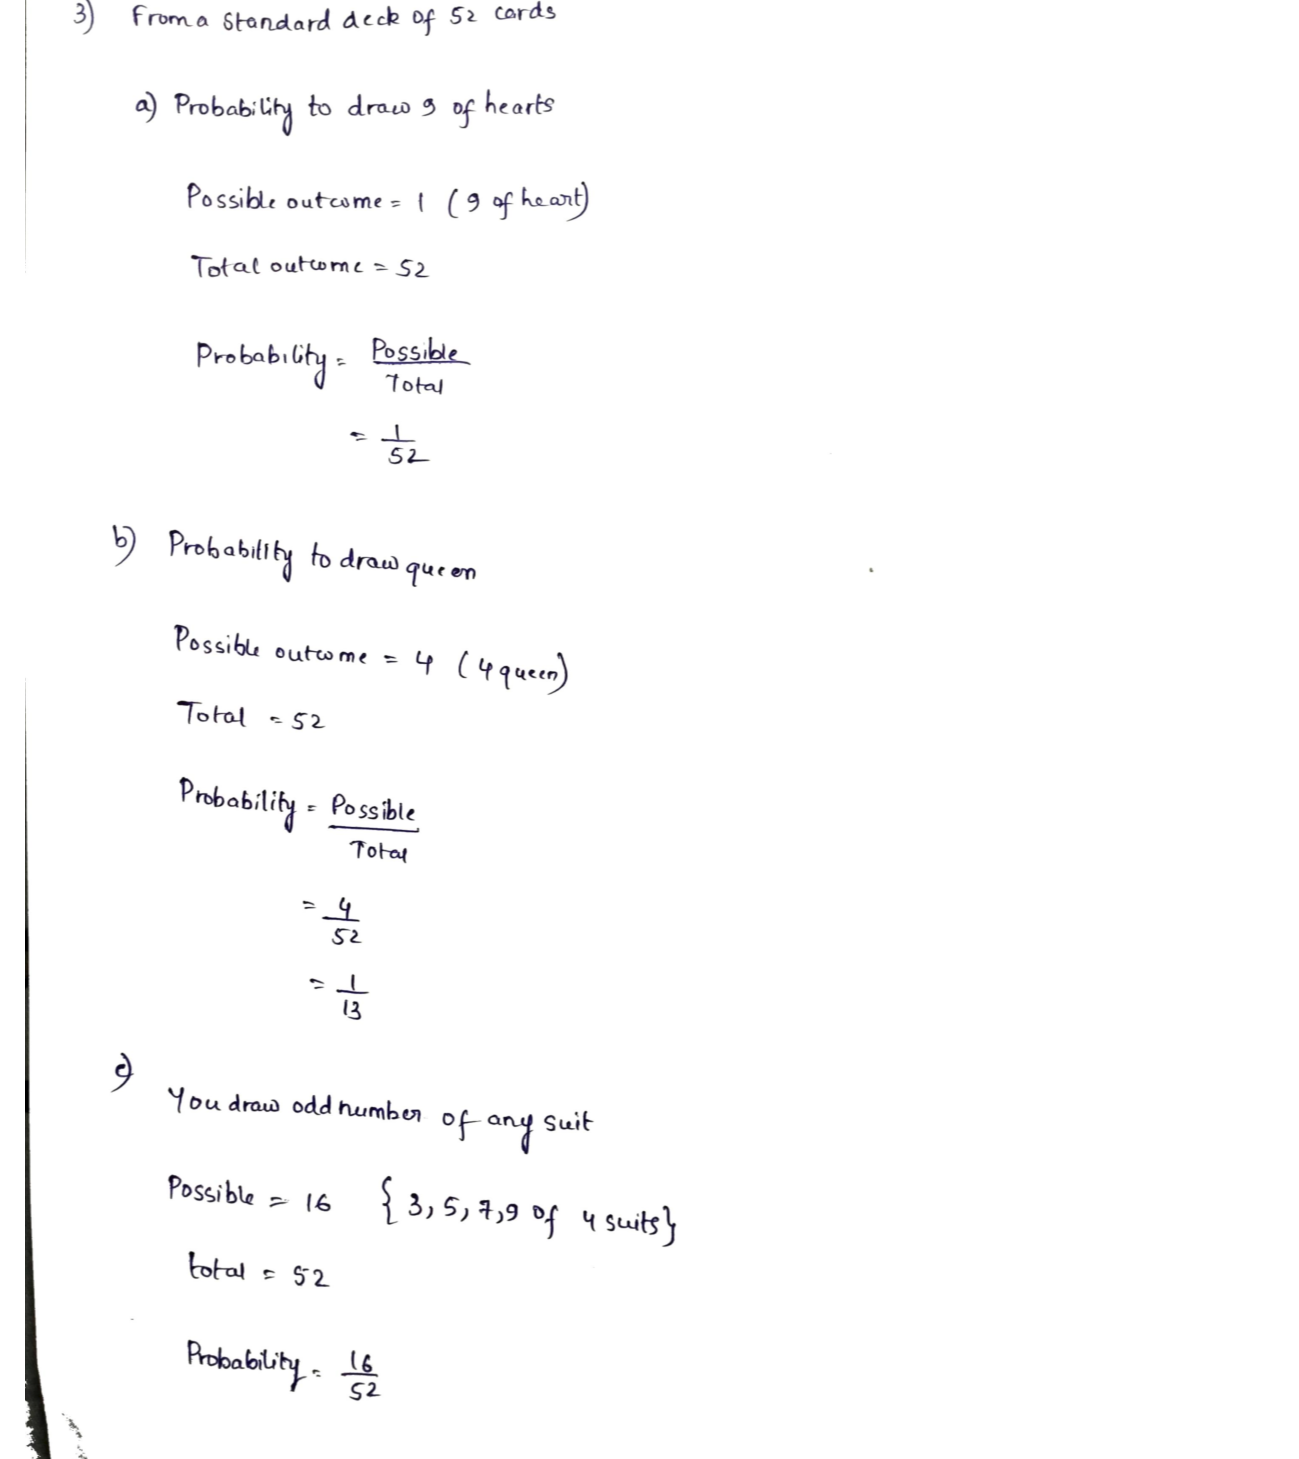 3) From a standard deck of 52 cards
a) Probability to draw 9 of hearts
Possible outcome = 1 (9 of heart)
Total outcome = 52
Probability = Possible
Total
= 1
52
b) Probability to draw queen
Possible outcome = 4 (4 queen)
Total = 52
Probability = Possible
Total
= 4
52
= 1
13
c)
You draw odd number of any suit
Possible = 16 {3, 5, 7, 9 of 4 suits}
total = 52
Probability = 16
52